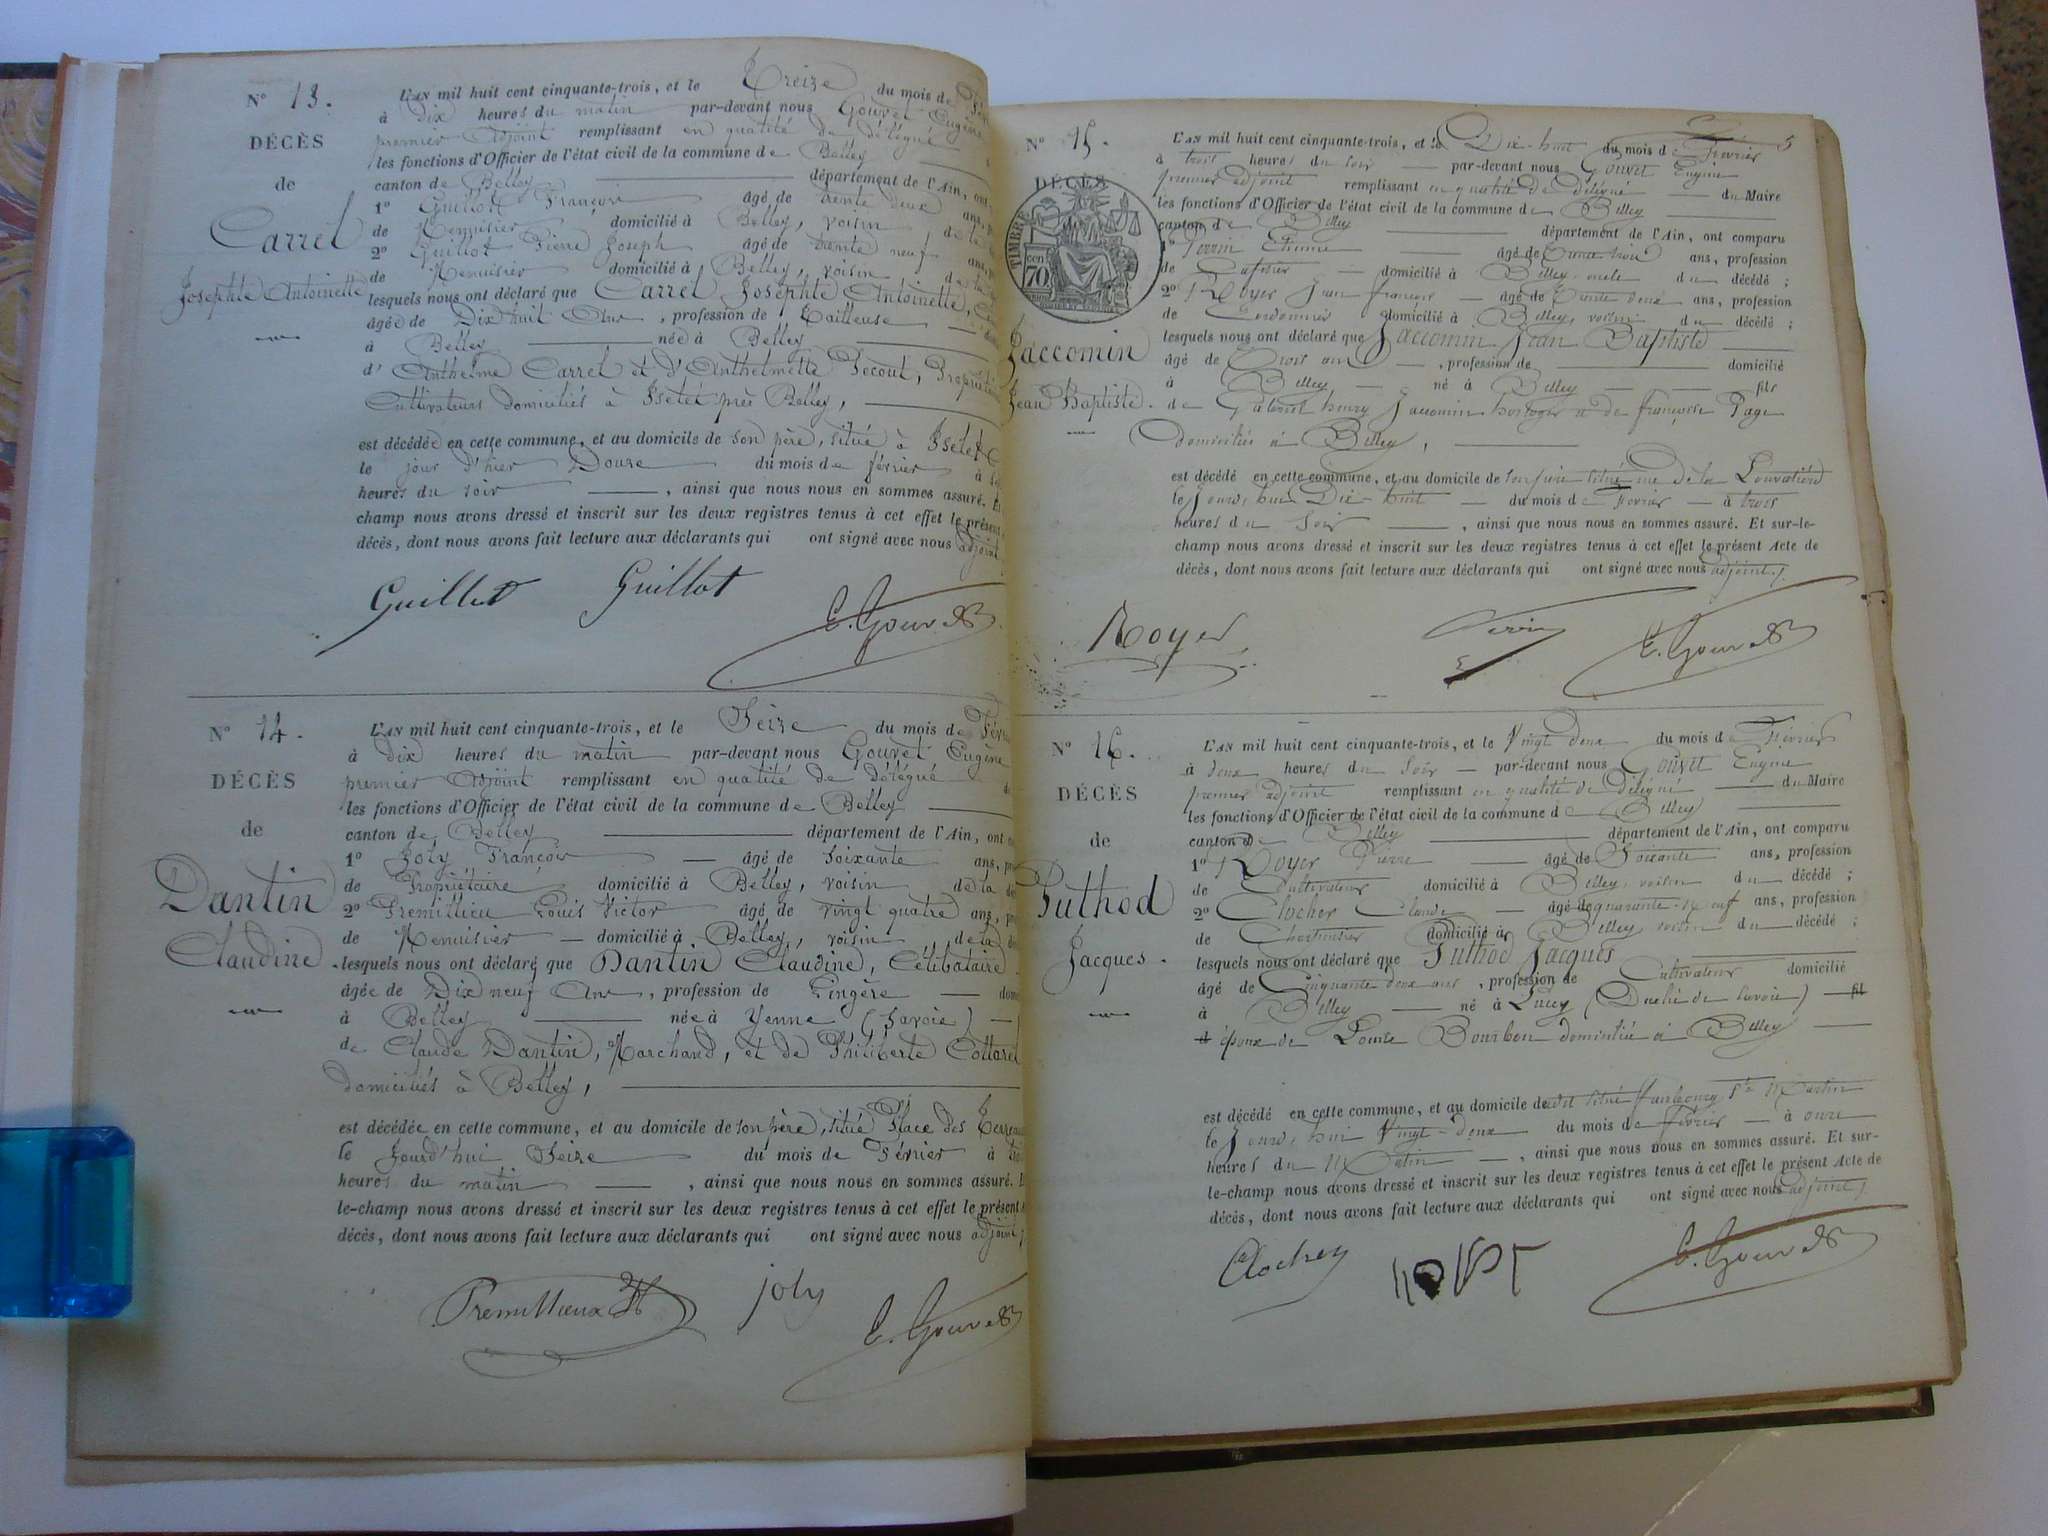 Nº 13.
DÉCÈS
de
Carrel
Josephte Antoinette
L'AN mil huit cent cinquante-trois, et le Treize du mois de
à Dix heures du matin par-devant nous Gouvet Eugène
premier Adjoint remplissant en qualité de délégué
les fonctions d'Officier de l'état civil de la commune de Belley
canton de Belley département de l'Ain, ont
1º Guillot François âgé de trente deux ans,
de Menuisier domicilié à Belley, voisin de la
2º Guillot Pierre Joseph âgé de trente neuf ans,
de Menuisier domicilié à Belley, voisin
lesquels nous ont déclaré que Carrel Josephte Antoinette,
âgée de Dix huit Ans, profession de Tailleuse
à Belley née à Belley
d'Anthelme Carrel et d'Anthelmette Pecout,
Cultivateurs domiciliés à Iselet près Belley,
est décédée en cette commune, et au domicile de son père, situé à Iselet
le jour d'hier Douze du mois de février à
heures du soir, ainsi que nous nous en sommes assuré.
champ nous avons dressé et inscrit sur les deux registres tenus à cet effet le présent
décès, dont nous avons fait lecture aux déclarants qui ont signé avec nous adjoint
Guillot Guillot E. Gouvet
Nº 14.
DÉCÈS
de
Dantin
Claudine
L'AN mil huit cent cinquante-trois, et le Seize du mois de
à dix heures du matin par-devant nous Gouvet Eugène
premier Adjoint remplissant en qualité de délégué
les fonctions d'Officier de l'état civil de la commune de Belley
canton de Belley département de l'Ain, ont
1º Joly François âgé de soixante ans,
de Propriétaire domicilié à Belley, voisin de la
2º Premillieu Louis Victor âgé de vingt quatre ans,
de Menuisier domicilié à Belley, voisin de la
lesquels nous ont déclaré que Dantin Claudine, Célibataire
âgée de Dix neuf Ans, profession de Lingère
à Belley née à Yenne (Savoie)
de Claude Dantin, Marchand, et de Philiberte
domiciliés à Belley,
est décédée en cette commune, et au domicile de son père, situé Place des Terreaux
le Jourd'hui Seize du mois de Février à
heures du matin, ainsi que nous nous en sommes assuré.
le-champ nous avons dressé et inscrit sur les deux registres tenus à cet effet le présent
décès, dont nous avons fait lecture aux déclarants qui ont signé avec nous adjoint
Premillieux joly E. Gouvet
5
Nº 15.
DÉCÈS
TIMBRE
70 cen
Jaccomin
Jean Baptiste.
L'AN mil huit cent cinquante-trois, et le Dix-huit du mois de Février
à trois heures du soir par-devant nous Gouvet Eugène
premier adjoint remplissant en qualité de Délégué du Maire
les fonctions d'Officier de l'état civil de la commune de Belley
canton de Belley département de l'Ain, ont comparu
Perrin Etienne âgé de trente trois ans, profession
de domicilié à Belley oncle du décédé ;
2º Royer Jean françois âgé de trente deux ans, profession
de Cordonnier domicilié à Belley, voisin du décédé ;
lesquels nous ont déclaré que Jaccomin Jean Baptiste
âgé de Trois ans, profession de domicilié
à Belley né à Belley fils
de Gabriel henry Jaccomin horloger et de françoise Page
domiciliés à Belley,
est décédé en cette commune, et au domicile de son père situé rue de la
le Jourd'hui Dix-huit du mois de Février à trois
heures du Soir, ainsi que nous nous en sommes assuré. Et sur-le-
champ nous avons dressé et inscrit sur les deux registres tenus à cet effet le présent Acte de
décès, dont nous avons fait lecture aux déclarants qui ont signé avec nous adjoint./.
Royer Perrin E. Gouvet
Nº 16.
DÉCÈS
de
Puthod
Jacques.
L'AN mil huit cent cinquante-trois, et le Vingt deux du mois de Février
à deux heures du Soir par-devant nous Gouvet Eugène
premier adjoint remplissant en qualité de Délégué du Maire
les fonctions d'Officier de l'état civil de la commune de Belley
canton de Belley département de l'Ain, ont comparu
1º Royer Pierre âgé de Soixante ans, profession
de Cultivateur domicilié à Belley, voisin du décédé ;
2º Clocher Claude âgé de quarante-neuf ans, profession
de domicilié à Belley voisin du décédé ;
lesquels nous ont déclaré que Puthod Jacques
âgé de Cinquante deux ans, profession de Cultivateur domicilié
à Belley né à Lucey (Duché de Savoie) fils
époux de Louise Bourbon domiciliée à Belley
est décédé en cette commune, et au domicile de situé faubourg St Martin
le Jourd'hui Vingt-deux du mois de Février à onze
heures du Matin, ainsi que nous nous en sommes assuré. Et sur-
le-champ nous avons dressé et inscrit sur les deux registres tenus à cet effet le présent Acte de
décès, dont nous avons fait lecture aux déclarants qui ont signé avec nous adjoint./.
Clocher E. Gouvet